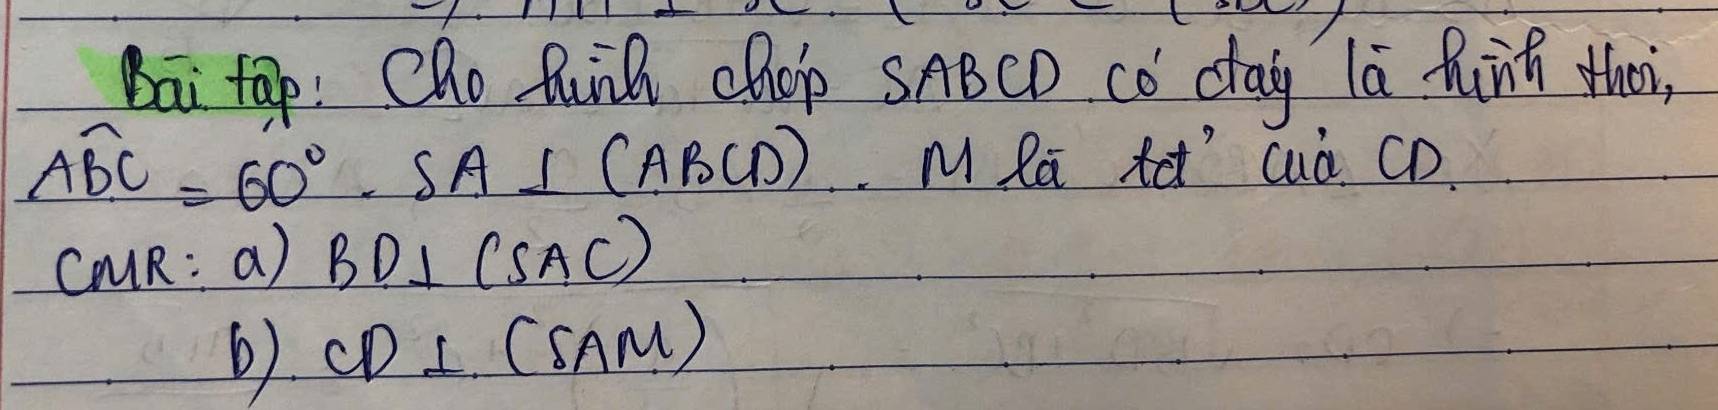 Bài tập: Cho hình chóp SABCD có đáy là hình thoi,
ABC = 60° . SA ⊥ (ABCD) . M là tđ' của CD.
CMR: a) BD ⊥ (SAC)
b) CD ⊥ (SAM)